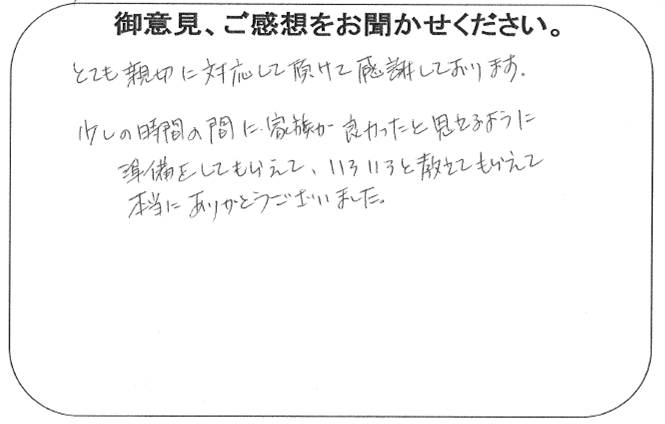 御意見、ご感想をお聞かせください。
とても親切に対応して頂けて感謝しております.
少しの時間の間に、家族が良かったと思せるように
準備をしてもらえて、いろいろと教えてもらえて
本当にありがとうございました。